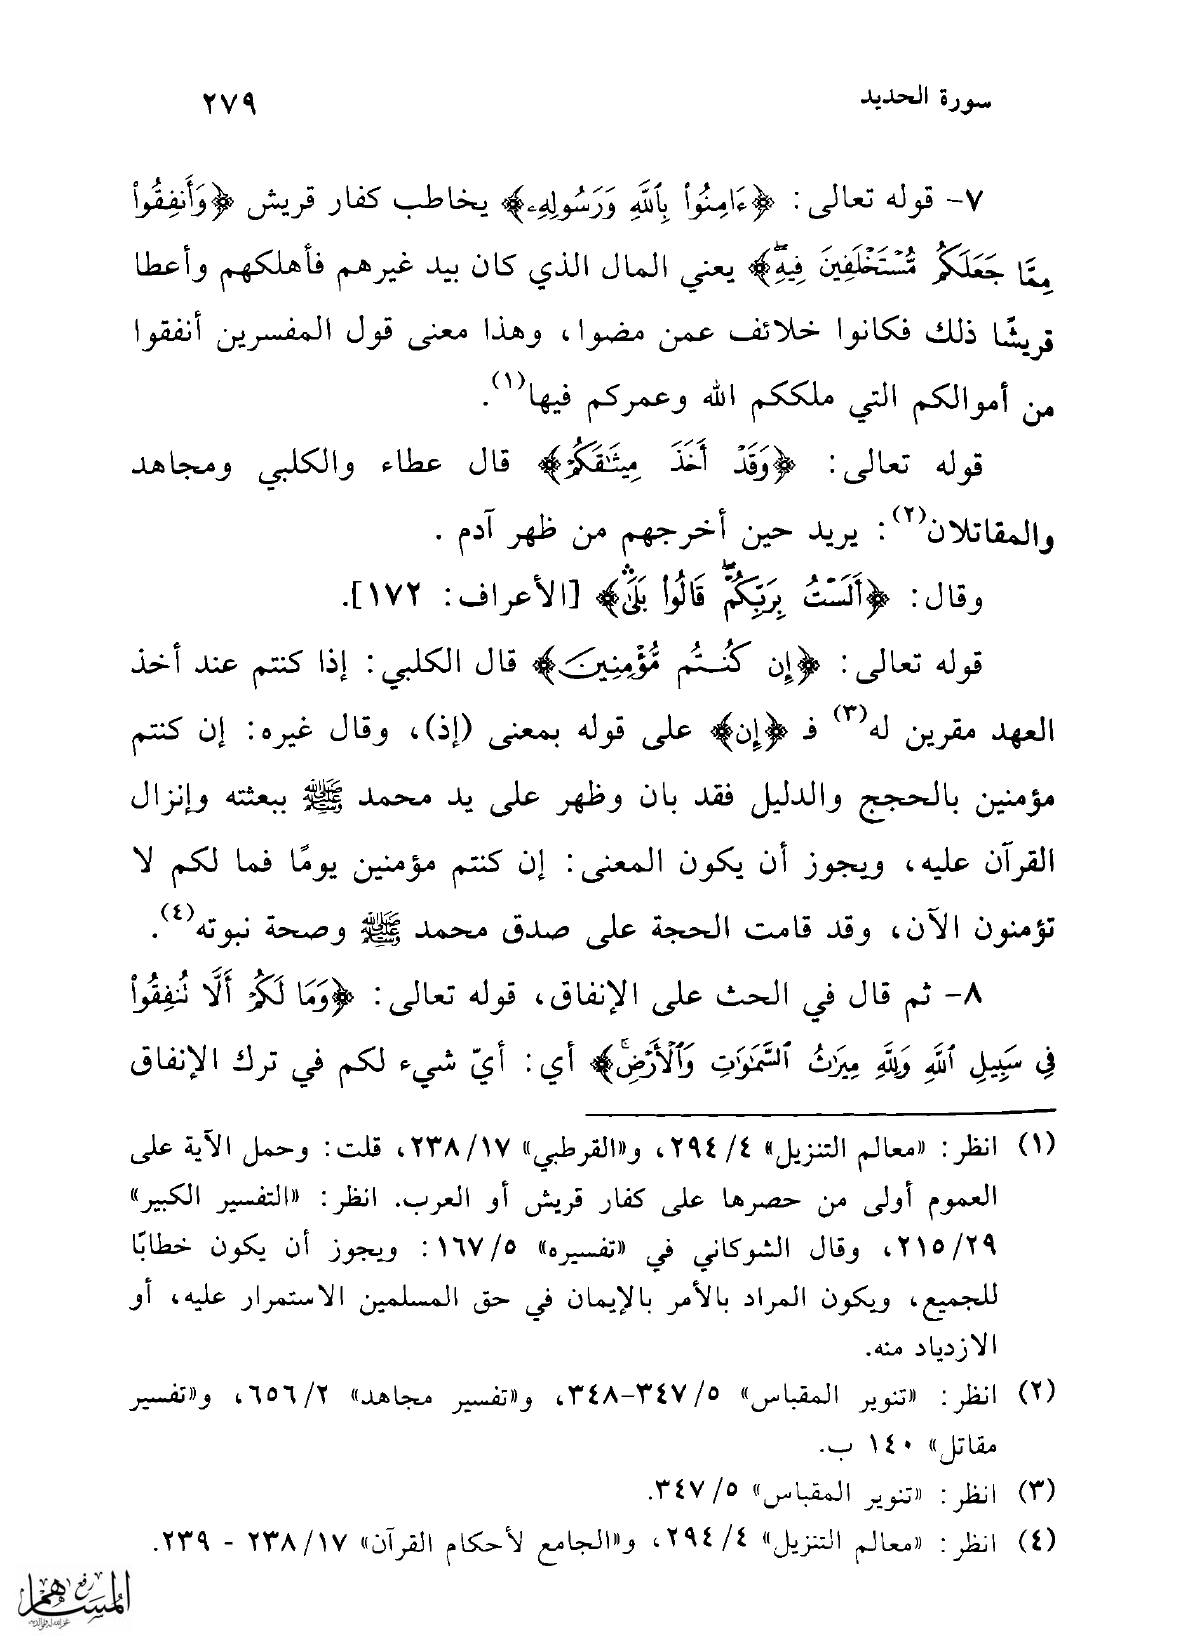 سورة الحديد ٢٧٩
٧- قوله تعالى: ﴿ءَامِنُوا۟ بِٱللَّهِ وَرَسُولِهِۦ﴾ يخاطب كفار قريش ﴿وَأَنفِقُوا۟
مِمَّا جَعَلَكُم مُّسْتَخْلَفِينَ فِيهِۖ﴾ يعني المال الذي كان بيد غيرهم فأهلكهم وأعطا
قريشًا ذلك فكانوا خلائف عمن مضوا، وهذا معنى قول المفسرين أنفقوا
من أموالكم التي ملككم الله وعمركم فيها(١).
قوله تعالى: ﴿وَقَدْ أَخَذَ مِيثَٰقَكُمْ﴾ قال عطاء والكلبي ومجاهد
والمقاتلان(٢): يريد حين أخرجهم من ظهر آدم .
وقال: ﴿أَلَسْتُ بِرَبِّكُمْۖ قَالُوا۟ بَلَىٰۛ﴾ [الأعراف: ١٧٢].
قوله تعالى: ﴿إِن كُنتُم مُّؤْمِنِينَ﴾ قال الكلبي: إذا كنتم عند أخذ
العهد مقرين له(٣) فـ ﴿إِن﴾ على قوله بمعنى (إذ)، وقال غيره: إن كنتم
مؤمنين بالحجج والدليل فقد بان وظهر على يد محمد ﷺ ببعثته وإنزال
القرآن عليه، ويجوز أن يكون المعنى: إن كنتم مؤمنين يومًا فما لكم لا
تؤمنون الآن، وقد قامت الحجة على صدق محمد ﷺ وصحة نبوته(٤).
٨- ثم قال في الحث على الإنفاق، قوله تعالى: ﴿وَمَا لَكُمْ أَلَّا تُنفِقُوا۟
فِى سَبِيلِ ٱللَّهِ وَلِلَّهِ مِيرَٰثُ ٱلسَّمَٰوَٰتِ وَٱلْأَرْضِۚ﴾ أي: أيّ شيء لكم في ترك الإنفاق
(١) انظر: «معالم التنزيل» ٤/ ٢٩٤، و«القرطبي» ١٧/ ٢٣٨، قلت: وحمل الآية على
العموم أولى من حصرها على كفار قريش أو العرب. انظر: «التفسير الكبير»
٢٩/ ٢١٥، وقال الشوكاني في «تفسيره» ٥/ ١٦٧: ويجوز أن يكون خطابًا
للجميع، ويكون المراد بالأمر بالإيمان في حق المسلمين الاستمرار عليه، أو
الازدياد منه.
(٢) انظر: «تنوير المقباس» ٥/ ٣٤٧-٣٤٨، و«تفسير مجاهد» ٢/ ٦٥٦، و«تفسير
مقاتل» ١٤٠ ب.
(٣) انظر: «تنوير المقباس» ٥/ ٣٤٧.
(٤) انظر: «معالم التنزيل» ٤/ ٢٩٤، و«الجامع لأحكام القرآن» ١٧/ ٢٣٨ - ٢٣٩.